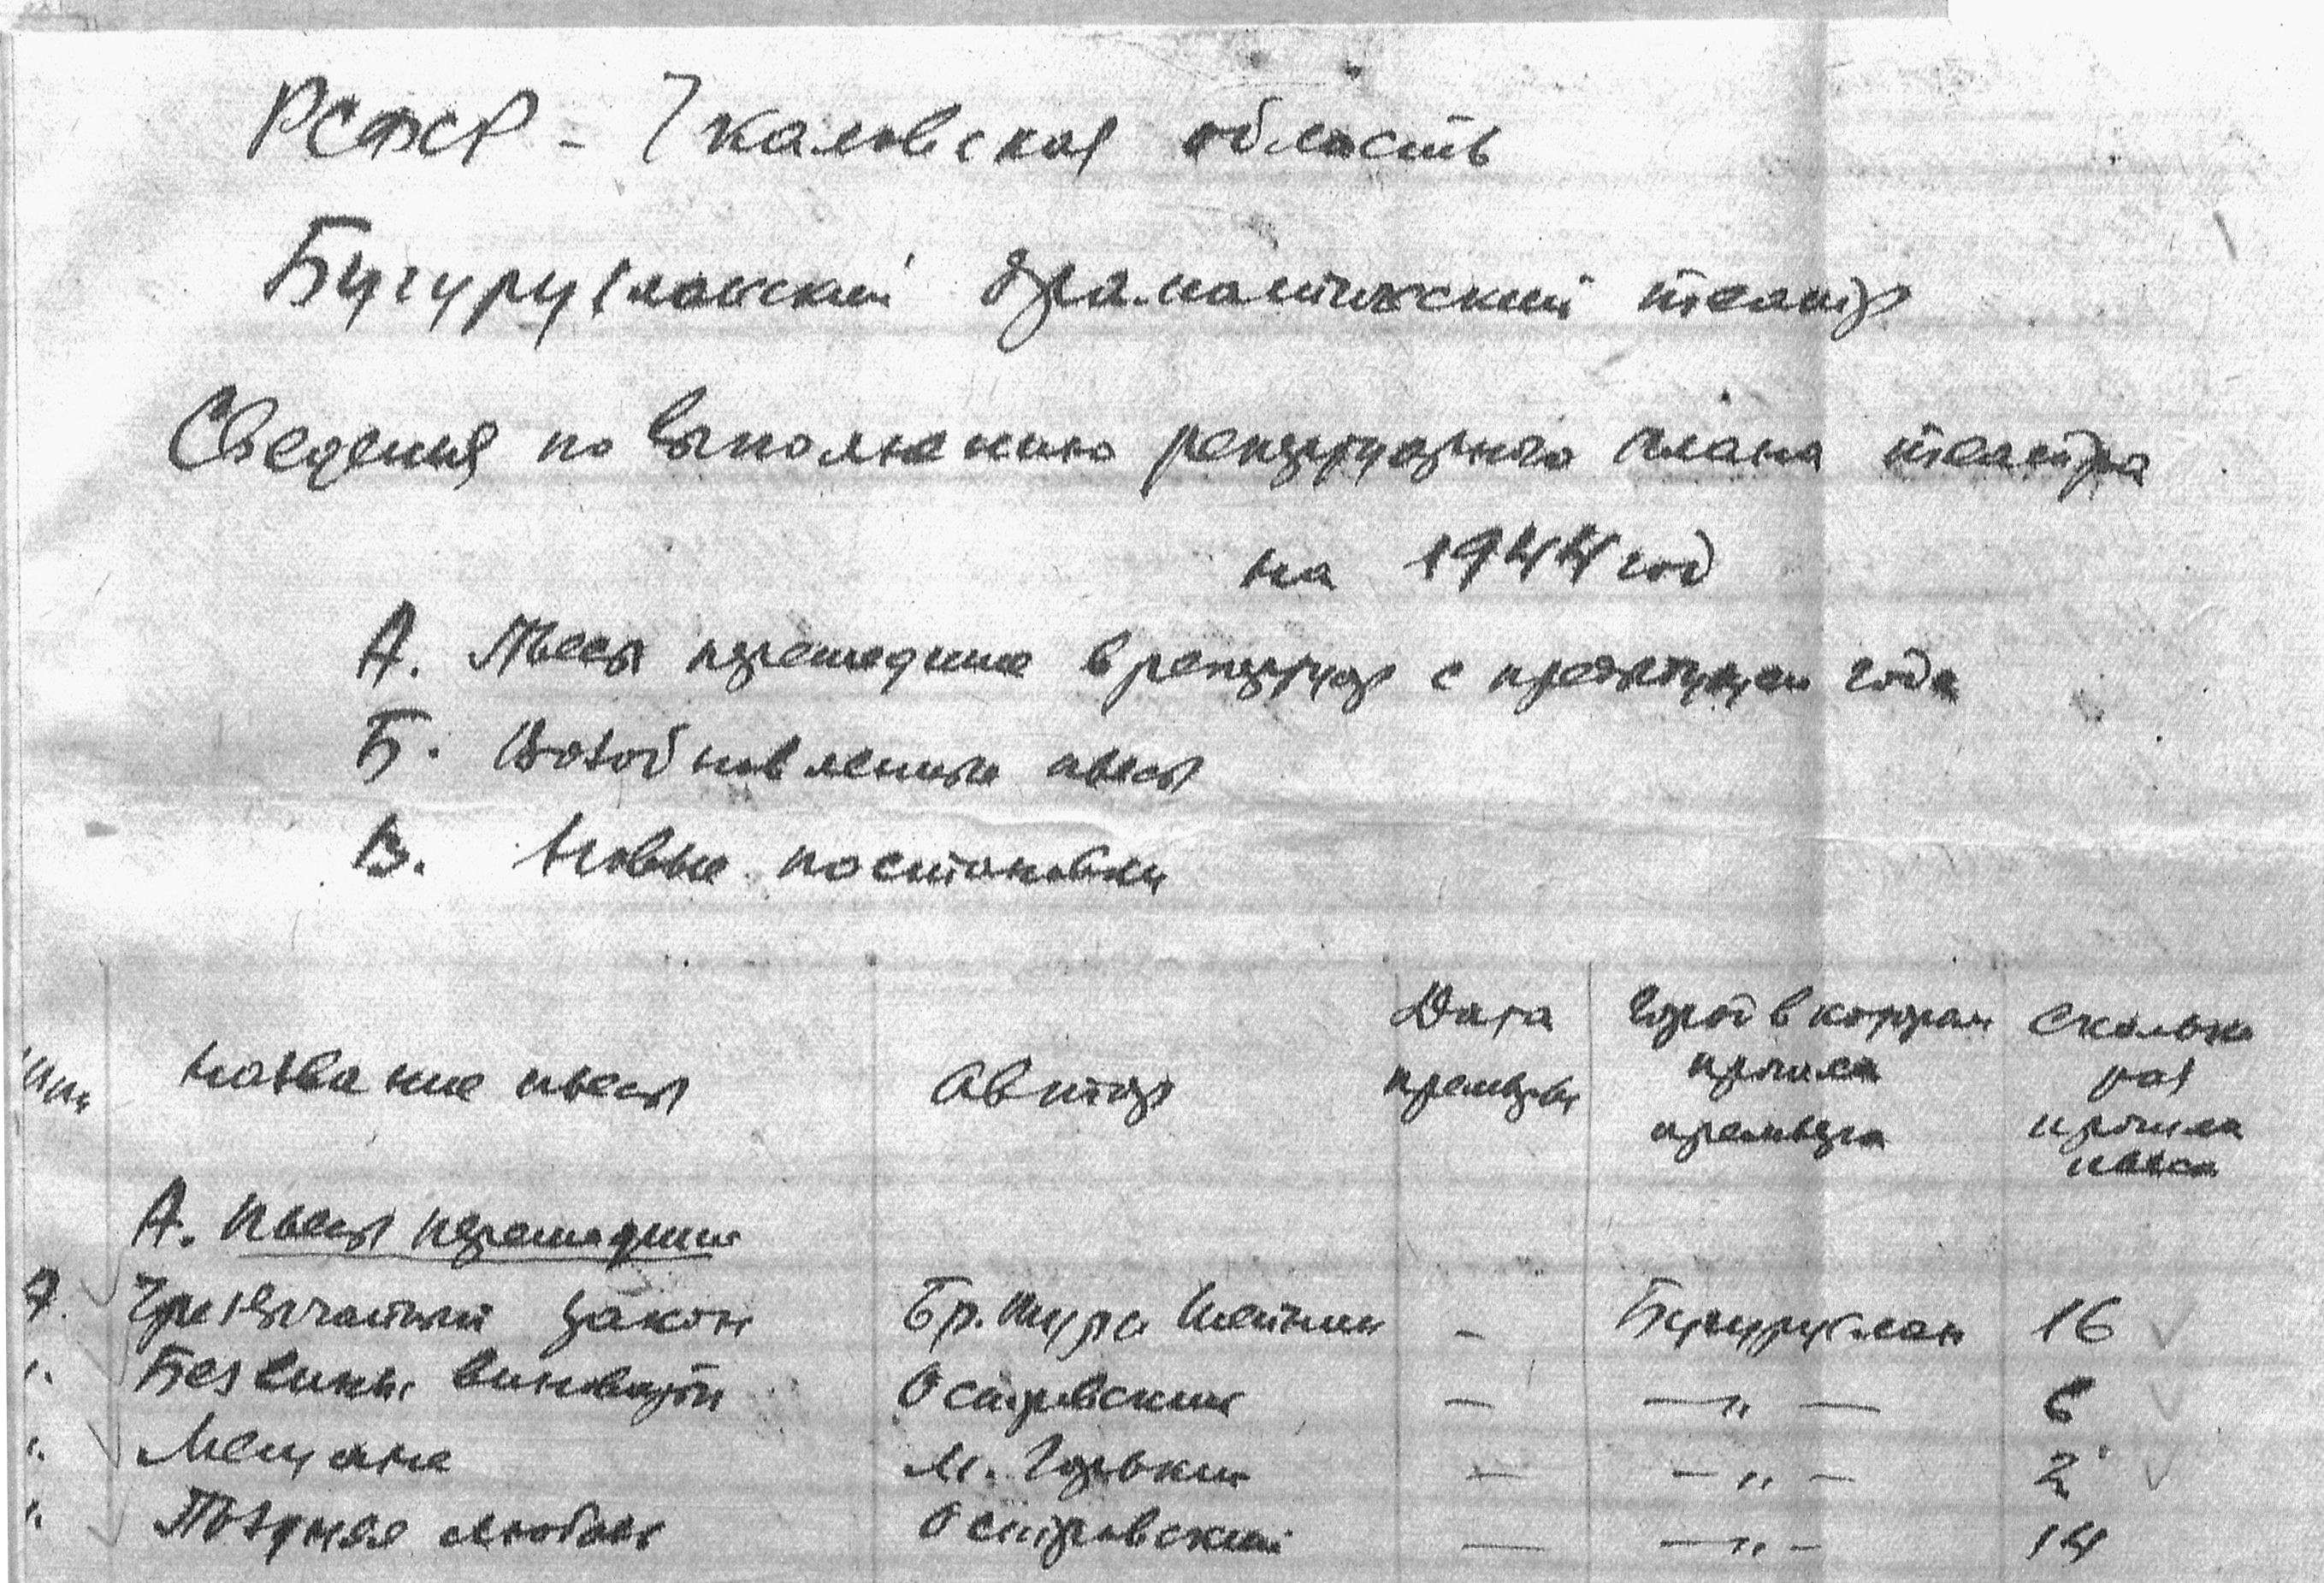 РСФСР - Чкаловская область
Бугурусланский драматический театр
Сведения по выполнению репертуарного плана театра
на 1944 год
А. Пьесы перешедшие в репертуар с предыдущего года
Б. Возобновленные пьесы
В. Новые постановки
Название пьесы
Автор
Дата
премьеры
Город в котором
прошла
премьера
Сколько
раз
прошла
пьеса
А. Пьесы перешедшие
Чрезвычайный закон Бр. Тур и Шейнин - Бугуруслан 16
Без вины виноватые Островский — —"— 6
Мещане М. Горький — —"— 2
Поздняя любовь Островский — —"— 14